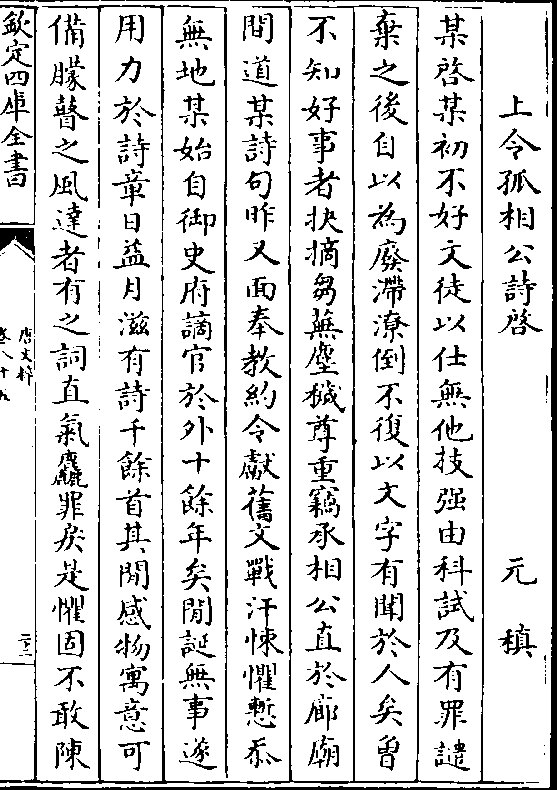 上令狐相公詩啓 元稹
某啓某初不好文徒以仕無他技强由科試及有罪譴
棄之後自以為廢滯潦倒不復以文字有聞於人矣曾
不知好事者抉摘芻蕪塵穢尊重竊承相公直於廊廟
間道某詩句昨又面奉教約令獻舊文戰汗悚懼慙忝
無地某始自御史府謫官於外十餘年矣閒誕無事遂
用力於詩章日益月滋有詩千餘首其閒感物寓意可
備矇瞽之風達者有之詞直氣麤罪戾是懼固不敢陳
欽定四庫全書
唐文粹
卷八十九
二十三